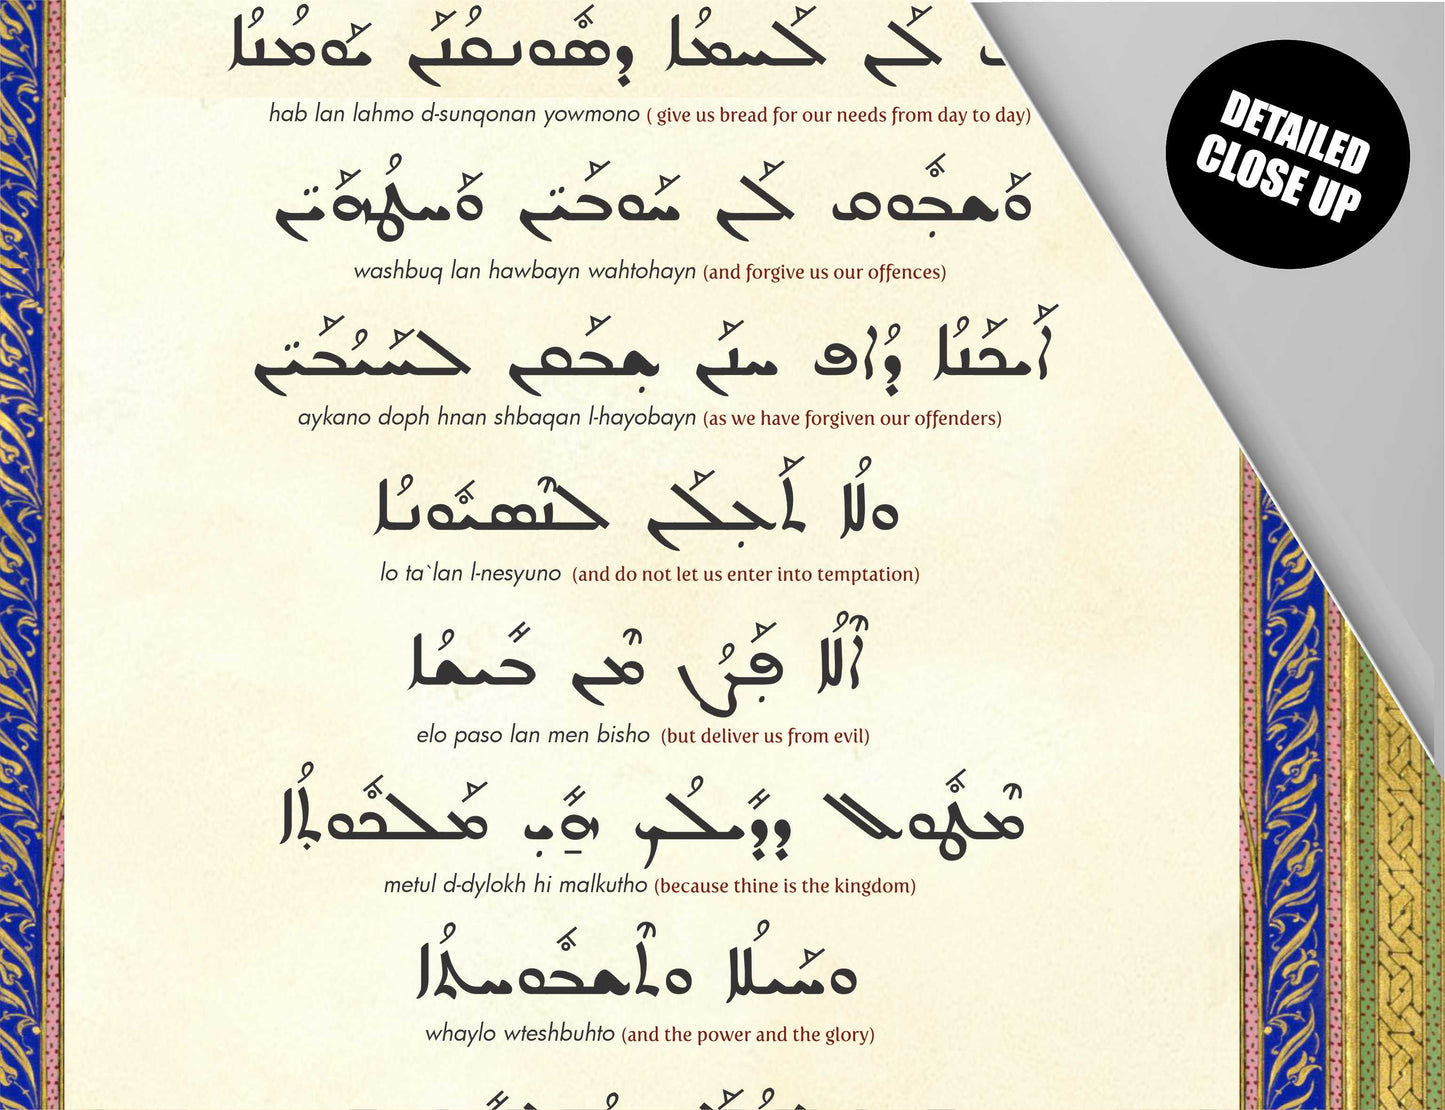 ܠܰܢ ܠܰܚܡܳܐ ܕܣܽܘܢܩܳܢܰܢ ܝܰܘܡܳܢܳܐ
hab lan lahmo d-sunqonan yowmono ( give us bread for our needs from day to day)
ܘܰܫܒ݂ܽܘܩ ܠܰܢ ܚܰܘܒܰܝ̈ܢ ܘܰܚܛܳܗܰܝ̈ܢ
washbuq lan hawbayn wahtohayn (and forgive us our offences)
ܐܰܝܟܰܢܳܐ ܕܳܐܦ ܚܢܰܢ ܫܒ݂ܰܩܢ ܠܚܰܝܳܒܰܝ̈ܢ
aykano doph hnan shbaqan l-hayobayn (as we have forgiven our offenders)
ܘܠܳܐ ܬܰܥ݂ܠܰܢ ܠܢܶܣܝܽܘܢܳܐ
lo ta`lan l-nesyuno (and do not let us enter into temptation)
ܐܶܠܳܐ ܦܰܨܳܢ ܡܶܢ ܒܺܝܫܳܐ
elo paso lan men bisho (but deliver us from evil)
ܡܶܛܽܘܠ ܕܕܺܝܠܳܟ ܗ̱ܺܝ ܡܰܠܟܽܘܬ݂ܳܐ
metul d-dylokh hi malkutho (because thine is the kingdom)
ܘܚܰܝܠܳܐ ܘܬܶܫܒܽܘܚܬܳܐ
whaylo wteshbuhto (and the power and the glory)
DETAILED
CLOSE UP